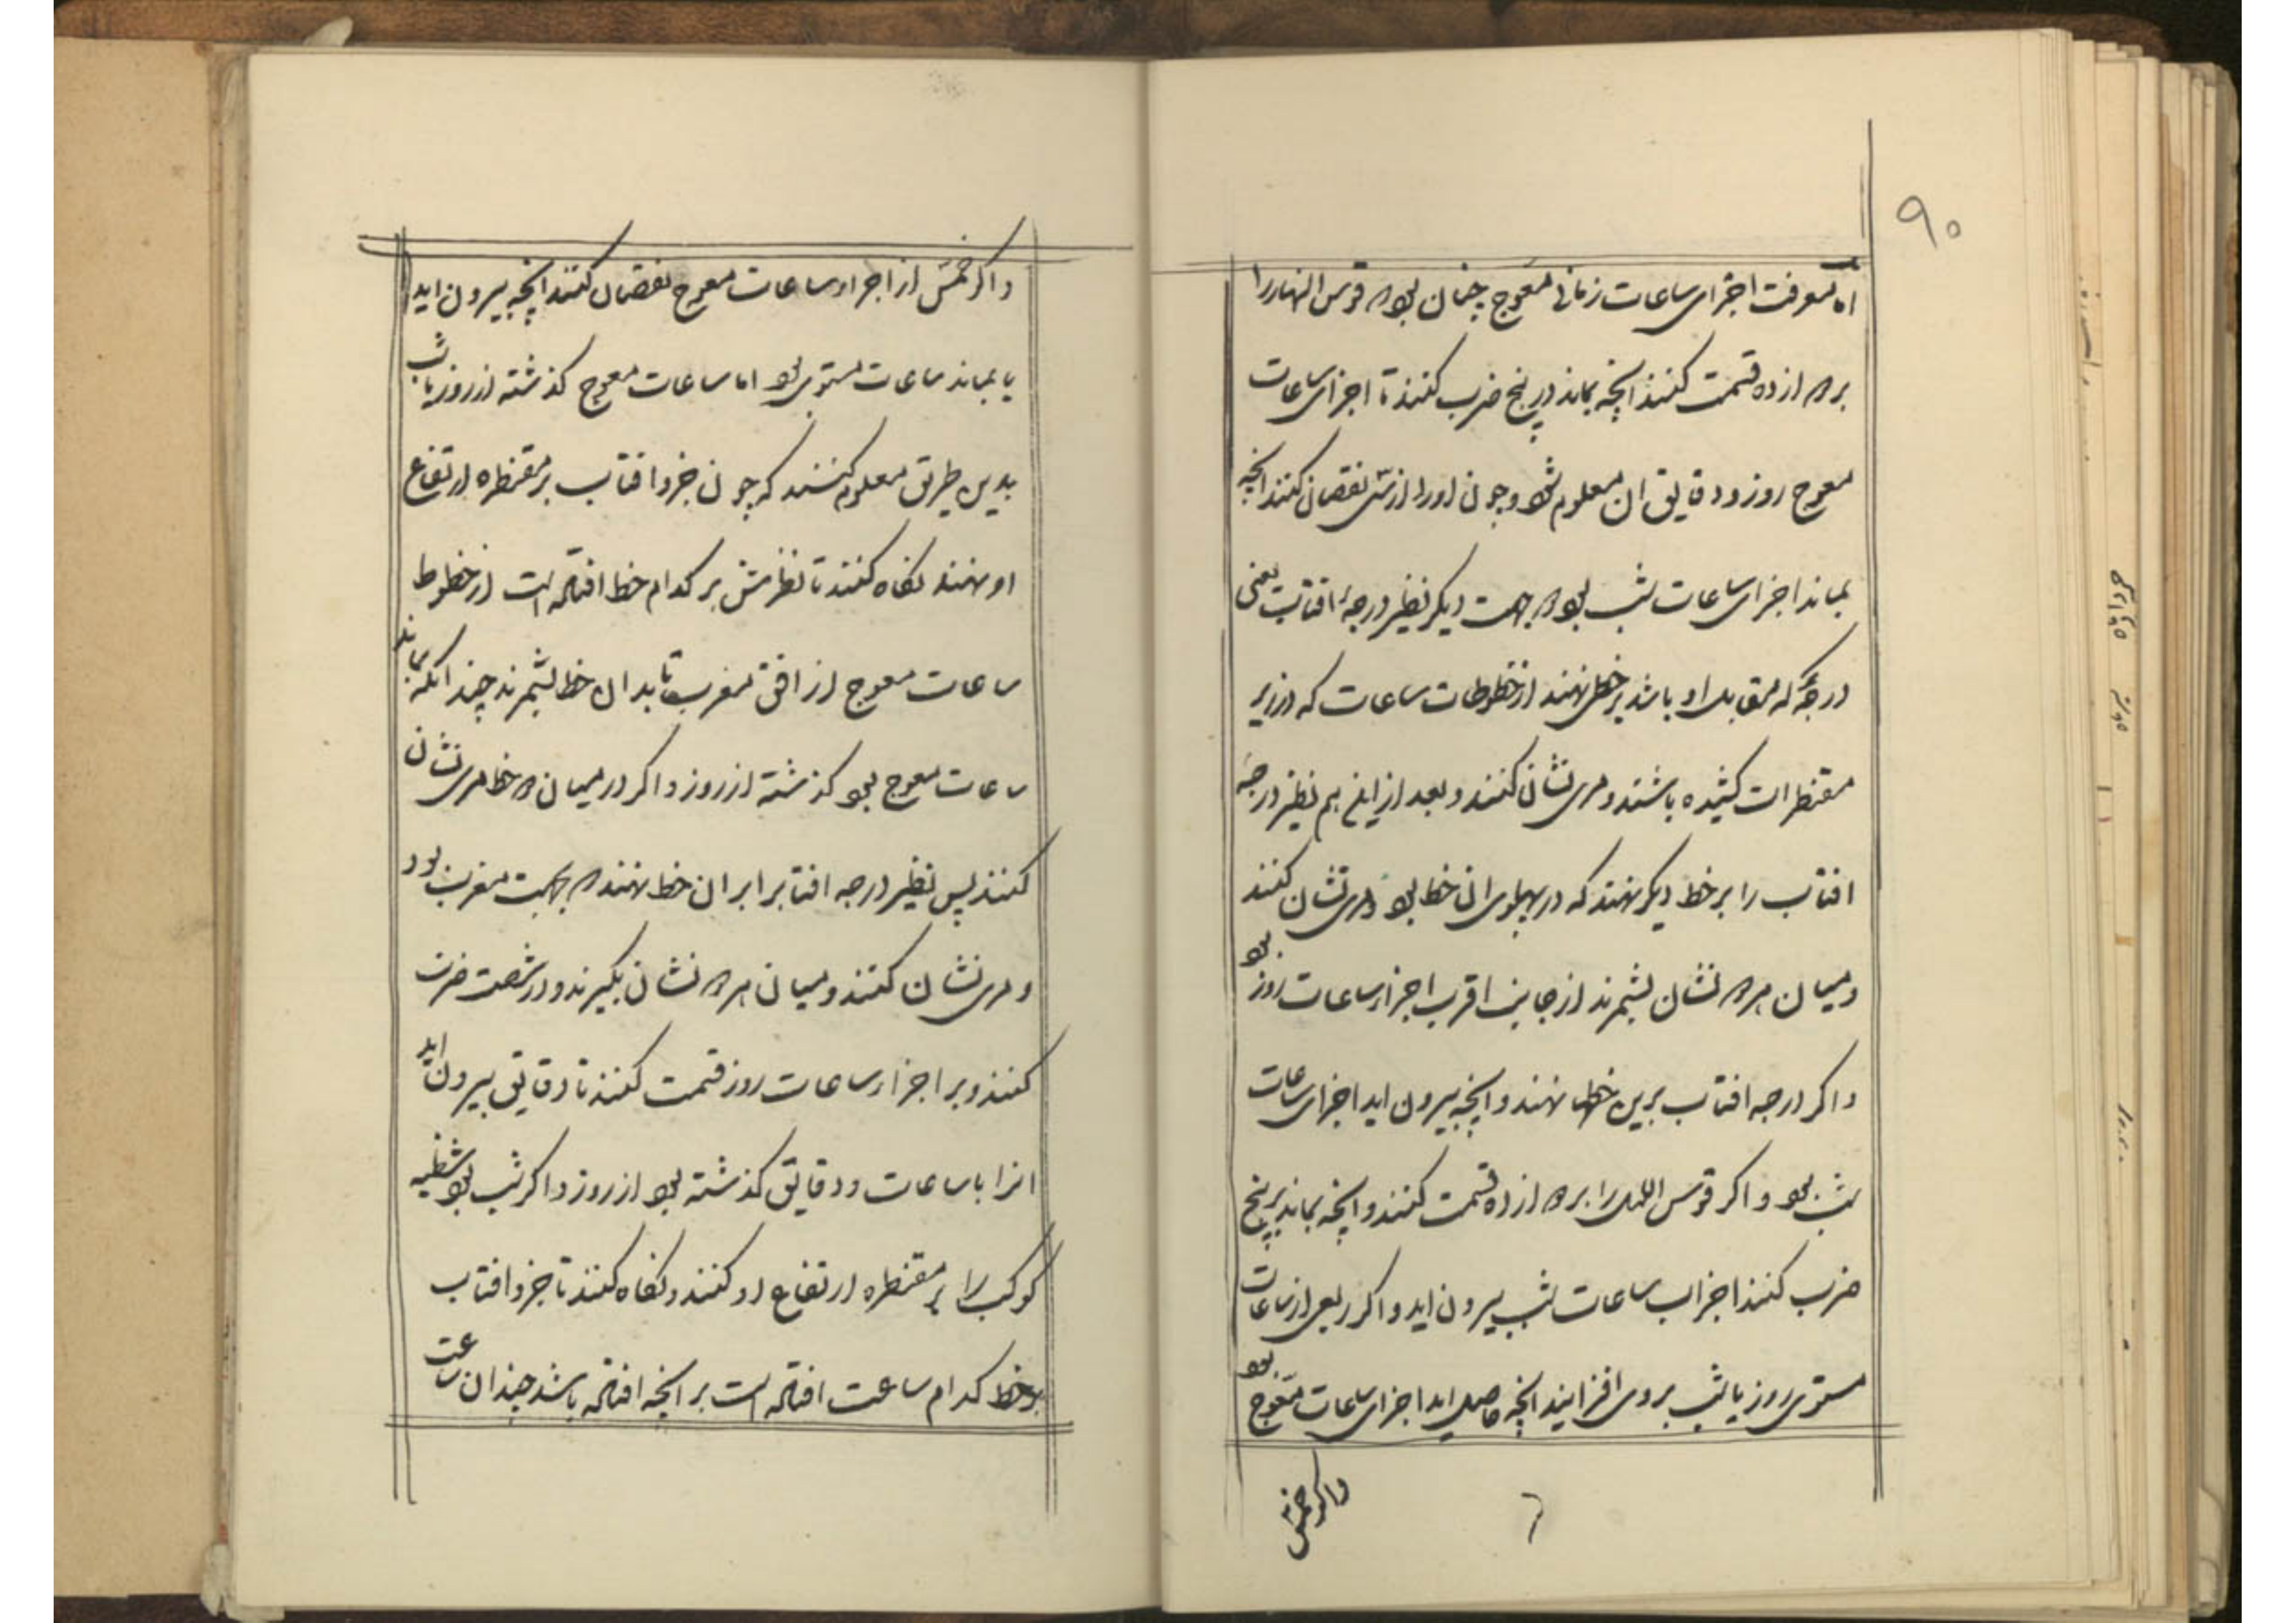 ۹۰
اما معرفت اجزای ساعات زمانی معوج چنان بود که قوس النهار را
بر دوازده قسمت کنند انچه بماند در پنج ضرب کنند تا اجزای ساعات
معوج روز و دقایق ان معلوم شود و چون او را از سی نقصان کنند انچه
بماند اجزای ساعات شب بود و بجهت دیگر نظیر درجهٔ افتاب یعنی
درجهٔ که مقابل او باشد بر خطی نهند از خطوطات ساعات که در زیر
مقنطرات کشیده باشند و مری نشان کنند و بعد از این هم نظیر درجه
افتاب را بر خط دیگر نهند که در پهلوی ان خط بود و مری نشان کنند
و میان هر دو نشان بشمرند از جانب اقرب اجزاء ساعات روز بود
و اگر درجه افتاب برین خطها نهند و انچه بیرون اید اجزای ساعات
شب بود و اگر قوس اللیل را بر دوازده قسمت کنند و انچه بماند بر پنج
ضرب کنند اجزاء ساعات شب بیرون اید و اگر ربعی از ساعات
مستوی روز یا شب بر وی افزایند انچه حاصل اید اجزای ساعات معوج بود
واگر خمس
۶
و اگر خمس از اجزاء ساعات معوج نقصان کنند انچه بیرون اید
یا بماند ساعات مستوی بود اما ساعات معوج گذشته از روز یا شب
بدین طریق معلوم کنند که چون جزو افتاب بر مقنطره ارتفاع
او نهند نگاه کنند تا نظیرش بر کدام خط افتاده است از خطوط
ساعات معوج از افق مغرب تا بدان خط بشمرند چندانکه بماند
ساعات معوج بود گذشته از روز و اگر در میان دو خط مری نشان
کنند پس نظیر درجه افتاب را بر ان خط نهند که بجهت مغرب بود
و مری نشان کنند و میان هر دو نشان بگیرند و در شصت ضرب
کنند و بر اجزاء ساعات روز قسمت کنند تا دقایق بیرون اید
انرا با ساعات و دقایق گذشته بود از روز و اگر شب بود شظیه
کوکب را بر مقنطره ارتفاع او کنند و نگاه کنند تا جزو افتاب
بر خط کدام ساعت افتاده است بر انچه افتاده باشد چندان ساعت